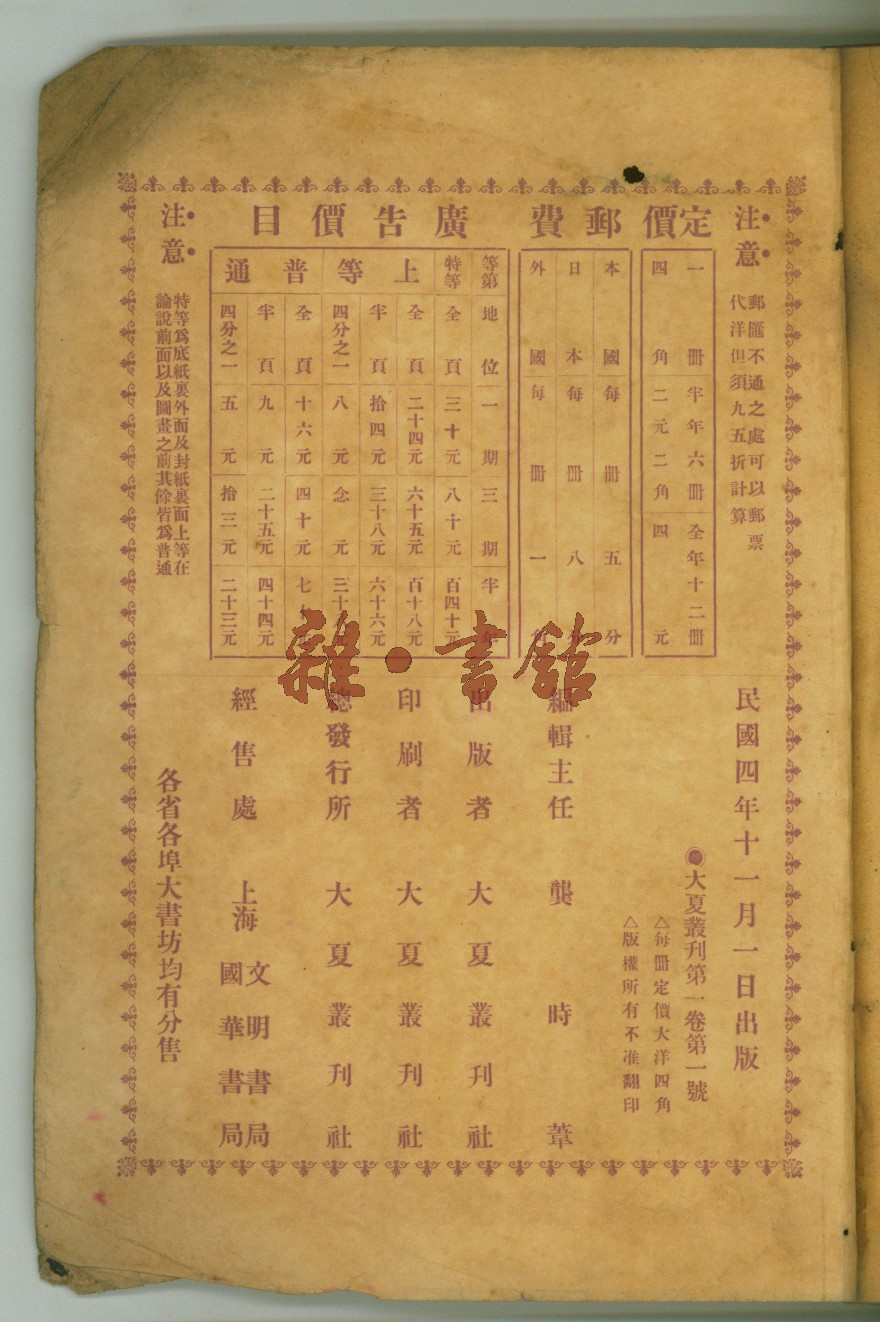 注意
郵匯不通之處可以郵票
代洋但須九五折計算
定價
一冊 半年六冊 全年十二冊
四角 二元二角 四元
郵費
本國每冊五分
日本每冊八分
外國每冊一
廣告價目
等第 地位 一期 三期 半年
特等 全頁 三十元 八十元 百四十元
上等 全頁 二十四元 六十五元 百十八元
半頁 拾四元 三十八元 六十六元
四分之一 八元 念元 三十
普通 全頁 十六元 四十元 七十
半頁 九元 二十五元 四十四元
四分之一 五元 拾三元 二十三元
注意
特等爲底紙裏外面及封紙裏面上等在
論說前面以及圖畫之前其餘皆爲普通
民國四年十一月一日出版
◉大夏叢刊第一卷第一號
△每冊定價大洋四角
△版權所有不准翻印
編輯主任 龔時葦
出版者 大夏叢刊社
印刷者 大夏叢刊社
總發行所 大夏叢刊社
經售處 上海 文明書局
國華書局
各省各埠大書坊均有分售
雜·書館